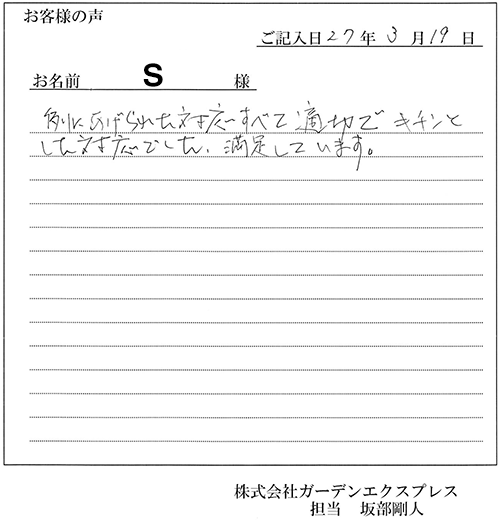 お客様の声
ご記入日 27 年 3 月 19 日
お名前 S 様
例にあげられた対応すべて適切でキチンと
した対応でした、満足しています。
株式会社ガーデンエクスプレス
担当 坂部剛人